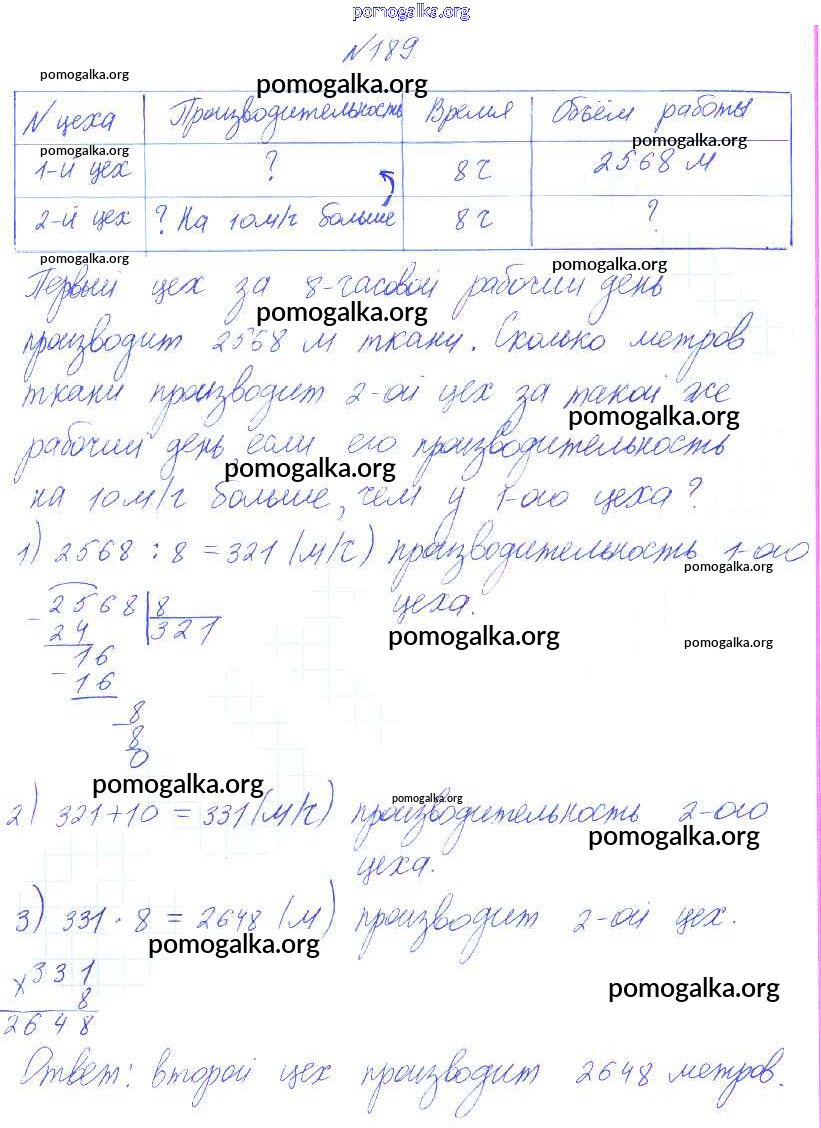 pomogalka.org
N 189.
pomogalka.org
pomogalka.org
N цеха Производительность Время Объём работы
pomogalka.org
pomogalka.org
1-й цех ? 8 ч 2568 м
2-й цех ? На 10 м/ч больше 8 ч ?
pomogalka.org
pomogalka.org
Первый цех за 8-часовой рабочий день
pomogalka.org
производит 2568 м ткани. Сколько метров
ткани производит 2-ой цех за такой же
pomogalka.org
рабочий день, если его производительность
pomogalka.org
на 10 м/ч больше, чем у 1-ого цеха?
1) 2568 : 8 = 321 (м/ч) производительность 1-ого
pomogalka.org
цеха.
2568 8
pomogalka.org
24 321
pomogalka.org
16
16
8
8
0
pomogalka.org
pomogalka.org
2) 321+10 = 331 (м/ч) производительность 2-ого
pomogalka.org
цеха.
3) 331 · 8 = 2648 (м) производит 2-ой цех.
pomogalka.org
x 331
pomogalka.org
8
2648
Ответ: второй цех производит 2648 метров.